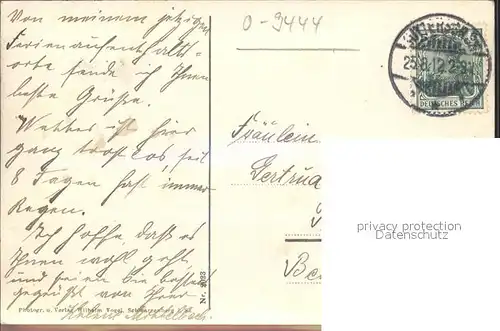 Von meinem jetzigen
Ferienaufenthalts-
orte sende ich Ihnen
beste Grüße.
Wetter ist hier
ganz trostlos, seit
8 Tagen fast immer
Regen.
Ich hoffe, daß es
Ihnen wohl geht
und seien Sie bestens
gegrüßt von Ihrer
Photogr. u. Verlag Wilhelm Vogel, Schwarzenberg
Nr.
O-9444
25.8.12.
DEUTSCHES REICH
Fräulein
Gertrud
Be
privacy protection
Datenschutz